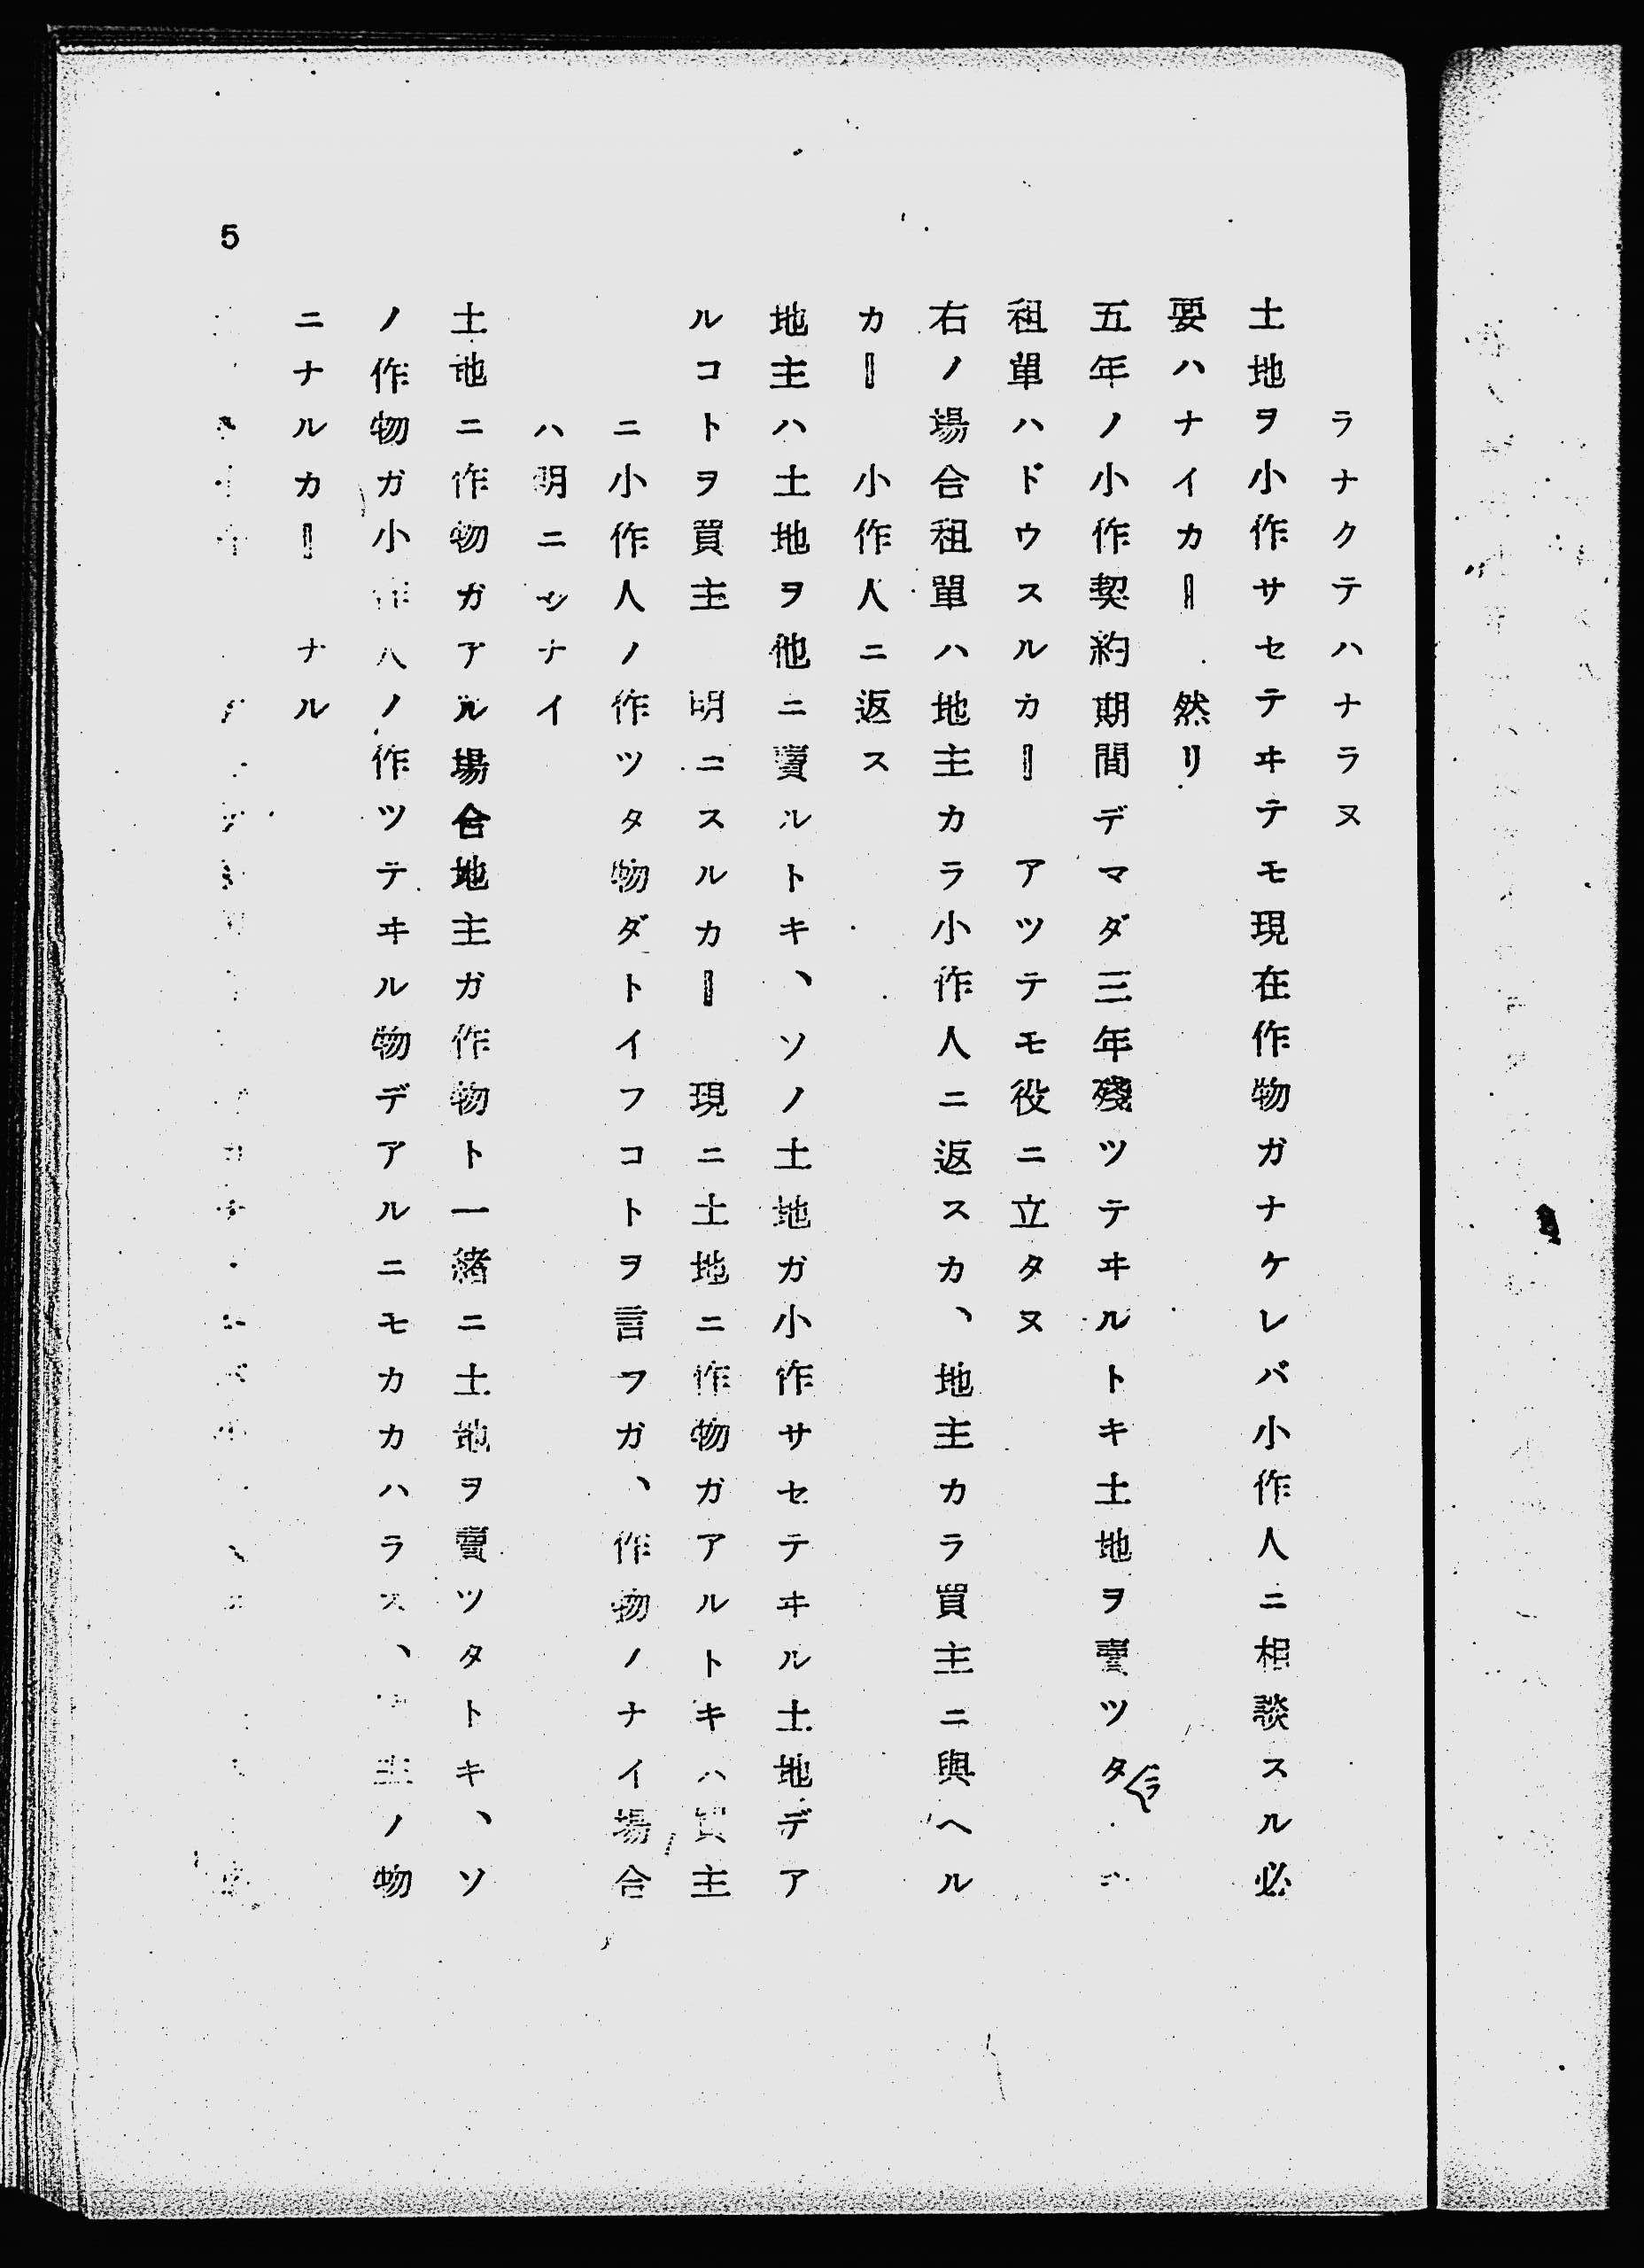 ラナクテハナラヌ
土地ヲ小作サセテヰテモ現在作物ガナケレバ小作人ニ相談スル必
要ハナイカ━ 然リ
五年ノ小作契約期間デマダ三年殘ツテヰルトキ土地ヲ賣ツタラ
租單ハドウスルカ━ アツテモ役ニ立タヌ
右ノ場合租單ハ地主カラ小作人ニ返スカ、地主カラ買主ニ與ヘル
カ━ 小作人ニ返ス
地主ハ土地ヲ他ニ賣ルトキ、ソノ土地ガ小作サセテヰル土地デア
ルコトヲ買主 明ニスルカ━ 現ニ土地ニ作物ガアルトキハ買主
ニ小作人ノ作ツタ物ダトイフコトヲ言フガ、作物ノナイ場合
ハ明ニシナイ
土地ニ作物ガアル場合地主ガ作物ト一緒ニ土地ヲ賣ツタトキ、ソ
ノ作物ガ小作人ノ作ツテヰル物デアルニモカカハラス、主ノ物
ニナルカ━ ナル
5